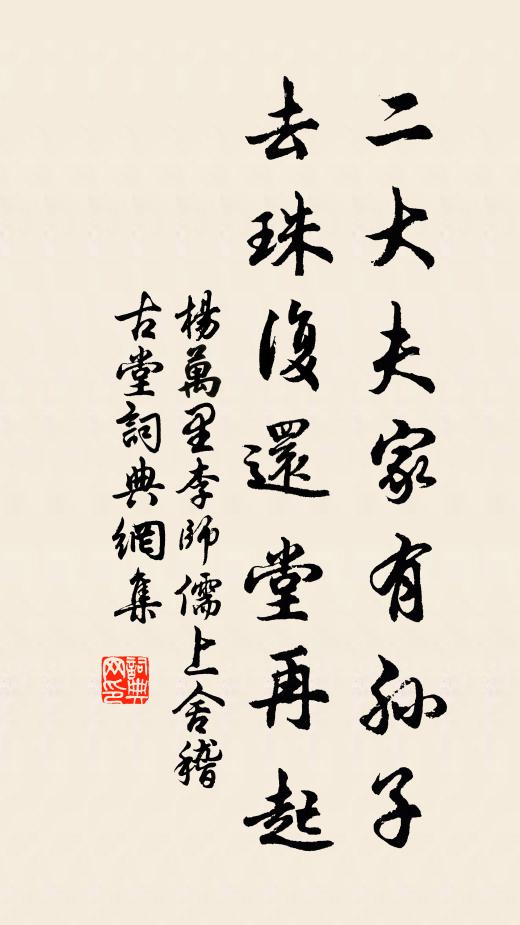 二大夫家有孙子
去珠復還堂再起
楊萬里李師儒上舍稽
古堂詞典網集
詞典
网印